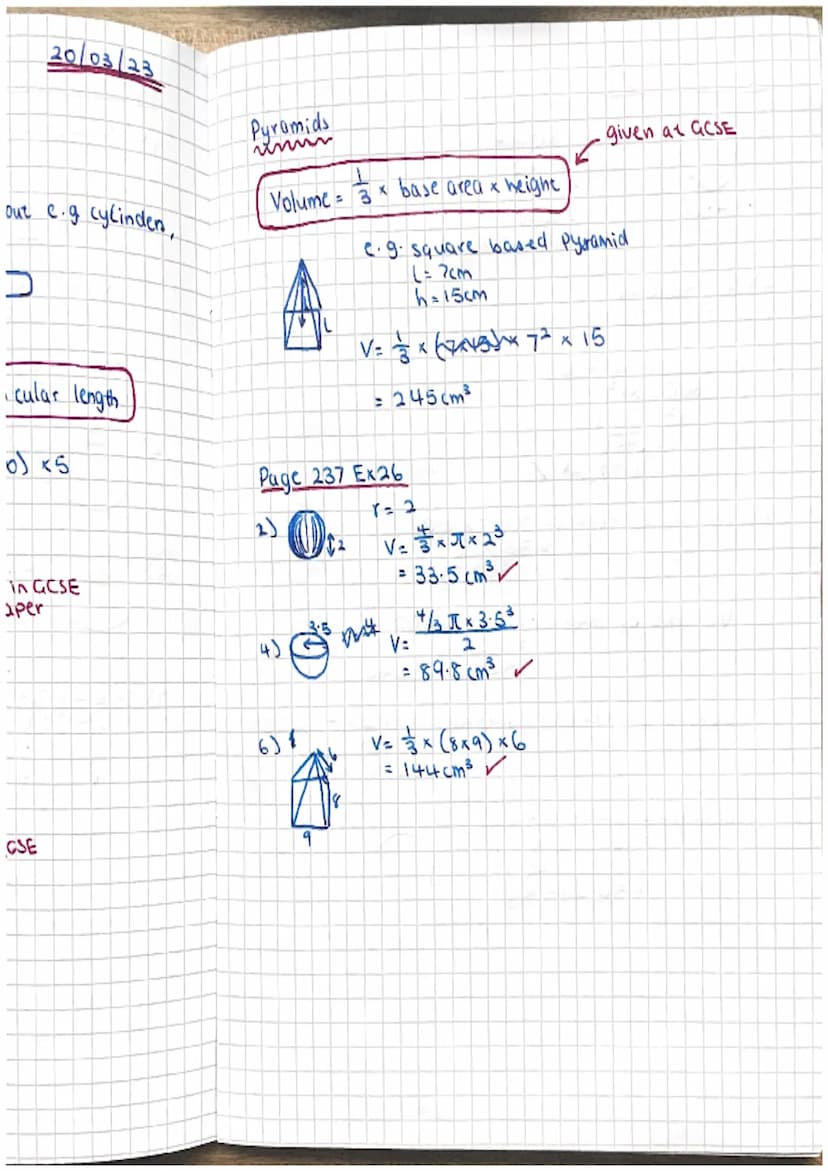 20/03/23
out e.g cylinder,
cular length
0) x5
in GCSE
aper
GCSE
Pyramids
given at GCSE
Volume = 1/3 x base area x height
e.g. square based pyramid
l = 7cm
h = 15cm
l
V = 1/3 x 7² x 15
= 245cm³
Page 237 Ex26
2)
2
r = 2
V = 4/3 x π x 2³
= 33.5cm³ ✓
4)
3.5
V = 4/3 π x 3.5³
2
= 89.8cm³ ✓
6)
6
8
9
V = 1/3 x (8x9) x 6
= 144cm³ ✓